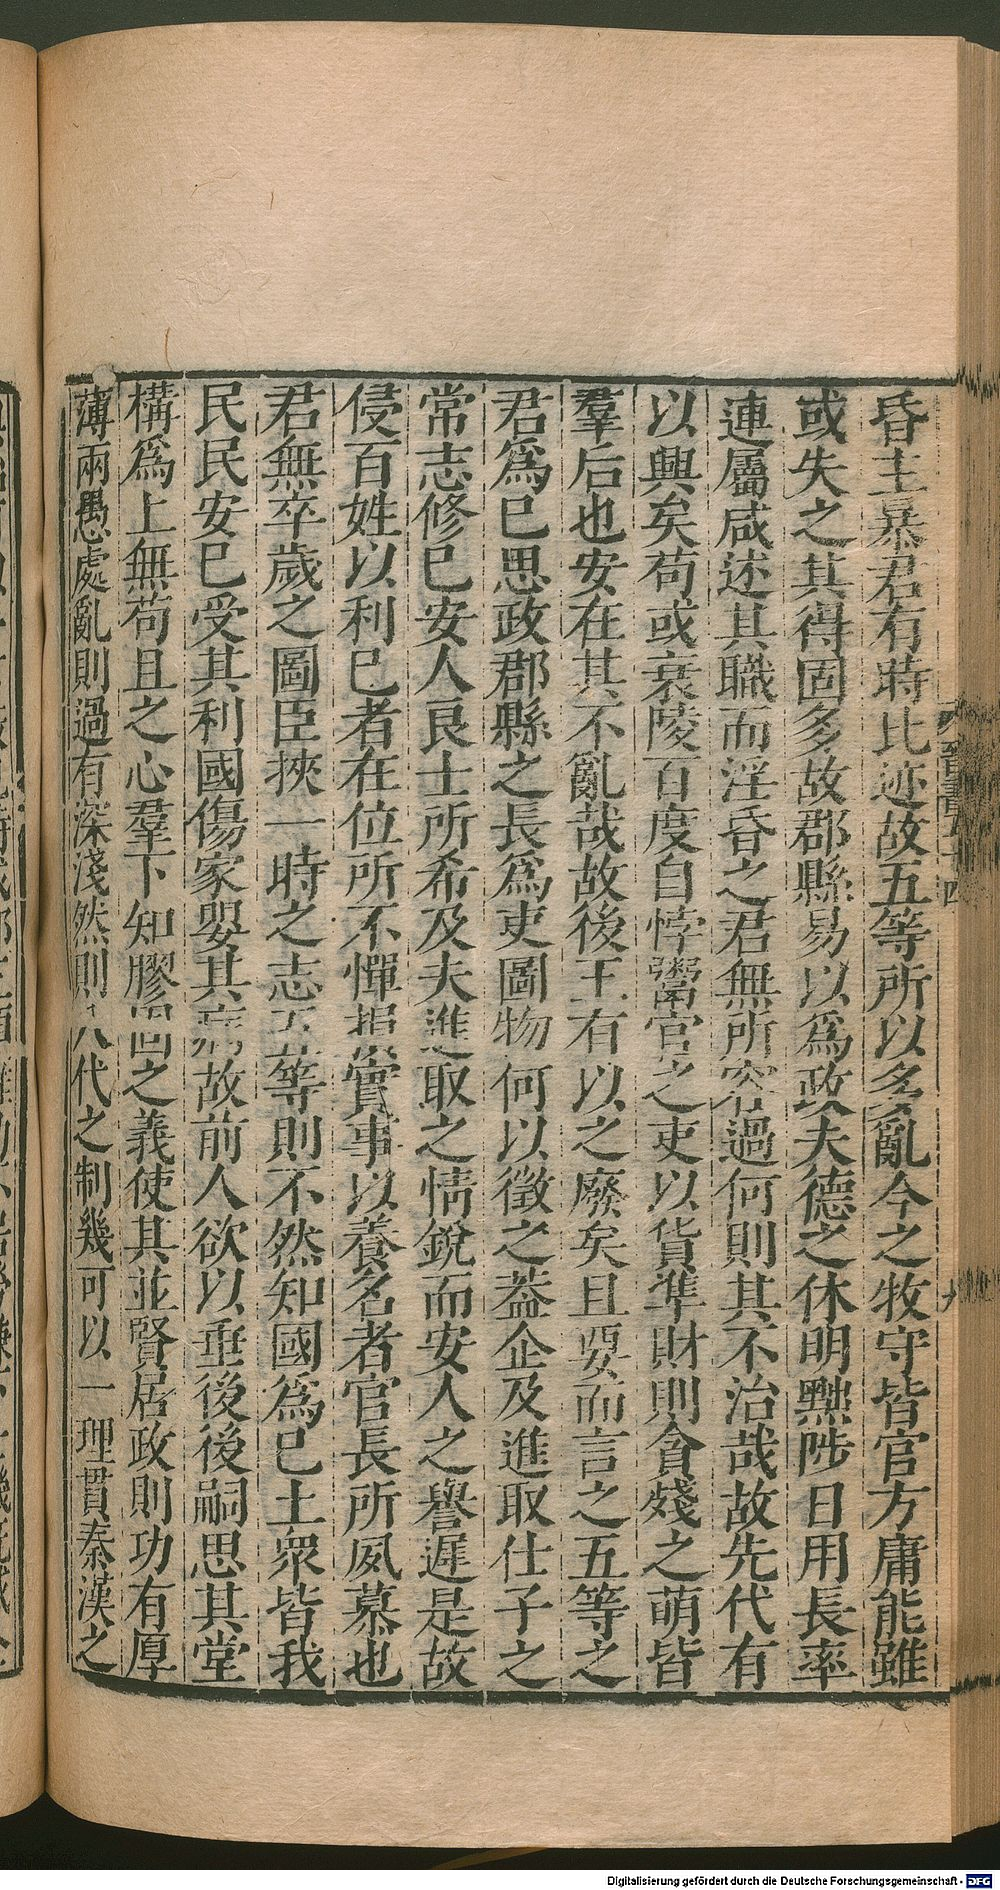 昏主暴君有時比迹故五等所以多亂今之牧守皆官方庸能雖
或失之其得固多故郡縣易以為政夫德之休明黜陟日用長率
連屬咸述其職而淫昏之君無所容過何則其不治哉故先代有
以興矣苟或衰陵百度自悖鬻官之吏以貨準財則貪殘之萌皆
羣后也安在其不亂哉故後王有以之廢矣且要而言之五等之
君爲巳思政郡縣之長爲吏圖物何以徵之葢企及進取仕子之
常志修巳安人良士所希及夫進取之情銳而安人之譽遲是故
侵百姓以利巳者在位所不憚損實事以養名者官長所夙慕也
君無卒歲之圖臣挾一時之志五等則不然知國爲巳土衆皆我
民民安巳受其利國傷家嬰其病故前人欲以垂後後嗣思其堂
構爲上無苟且之心羣下知膠固之義使其並賢居政則功有厚
薄兩愚處亂則過有深淺然則八代之制幾可以一理貫秦漢之
晉書五十四
九
Digitalisierung gefördert durch die Deutsche Forschungsgemeinschaft - DFG